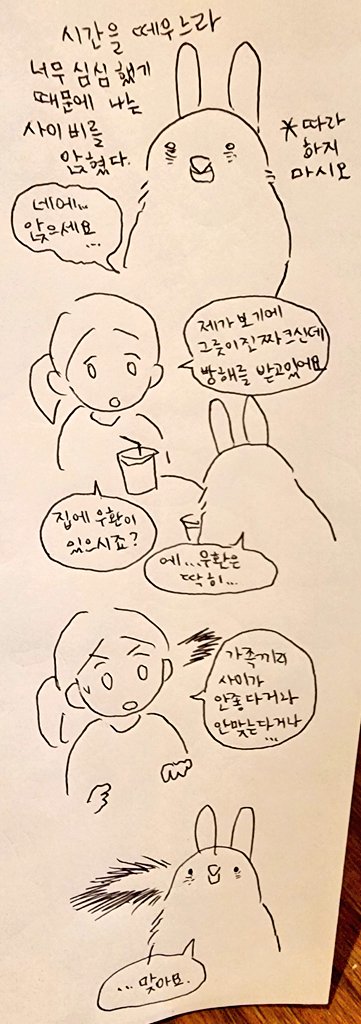 시간을 떼우느라
너무 심심했기
때문에 나는
사이비를
앉혔다.
*따라
하지
마시오
네에...
앉으세요
...
제가 보기에
그릇이 진짜 크신데
방해를 받고있어요
집에 우환이
있으시죠?
에...우환은
딱히...
가족끼리
사이가
안좋다거나
안맞는다거나
...
...맞아요.